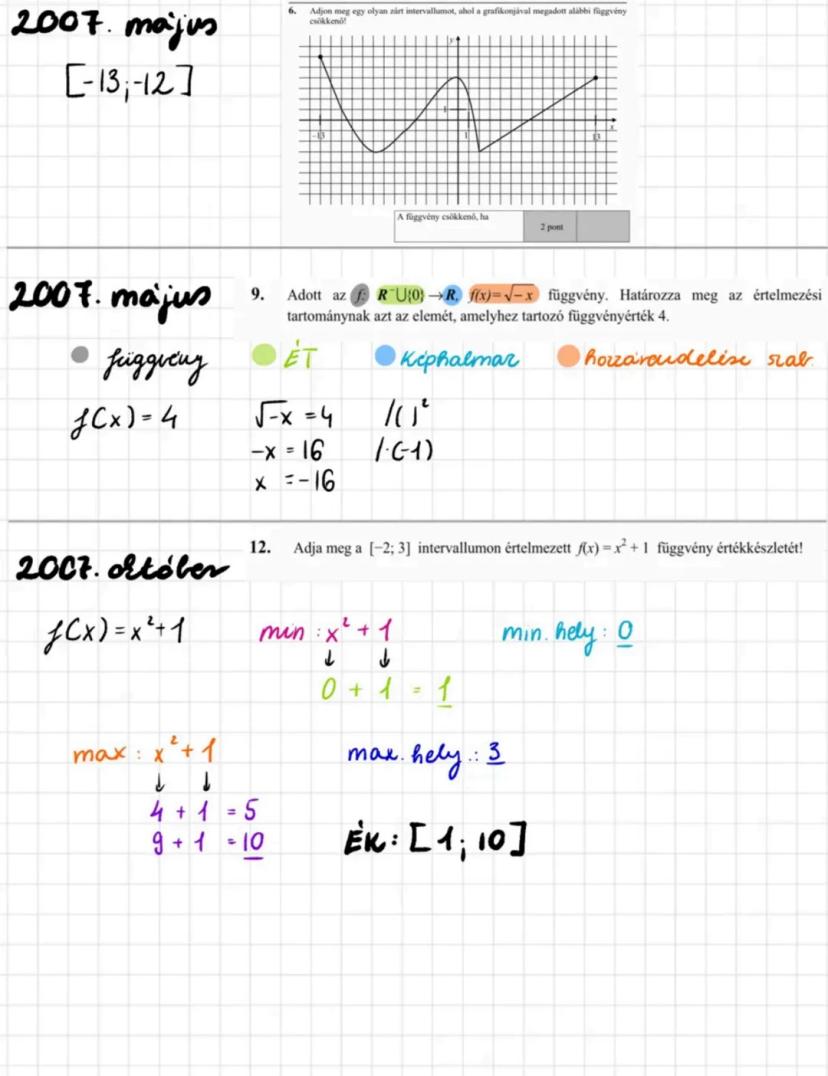 2007. május
6. Adjon meg egy olyan zárt intervallumot, ahol a grafikonjával megadott alábbi függvény
csökkenő!
[-13;-12]
y
1
-13 1 13 x
A függvény csökkenő, ha
2 pont
2007. május
9. Adott az f: R⁻∪{0} → R, f(x)=√-x függvény. Határozza meg az értelmezési
tartománynak azt az elemét, amelyhez tartozó függvényérték 4.
függvény ÉT Képhalmaz hozzárendelési szab.
f(x)=4 √-x =4 /( )²
-x = 16 /·(-1)
x =-16
12. Adja meg a [−2; 3] intervallumon értelmezett f(x) = x² + 1 függvény értékkészletét!
2007. október
f(x)=x²+1 min : x² + 1 min. hely : 0
↓ ↓
0 + 1 = 1
max : x² + 1 max. hely.: 3
↓ ↓
4 + 1 = 5
9 + 1 = 10 ÉK: [1; 10]